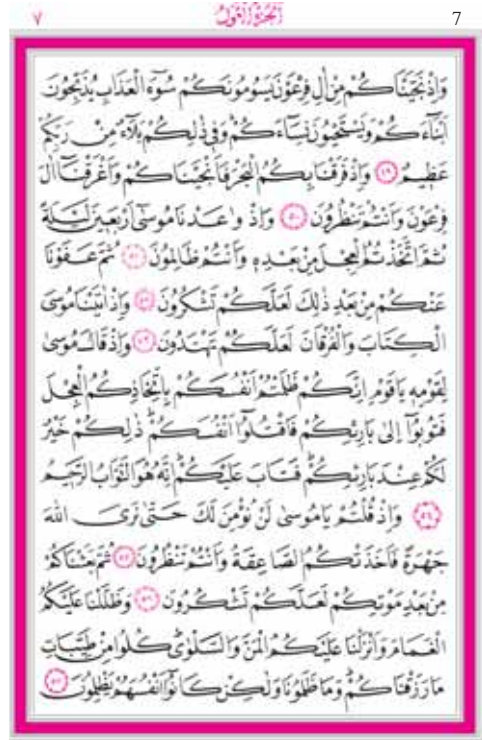 ٧ اَلْجُزْءُ الْاَوَّلُ 7
وَاِذْ نَجَّيْنَاكُمْ مِنْ اٰلِ فِرْعَوْنَ يَسُومُونَكُمْ سُوٓءَ الْعَذَابِ يُذَبِّحُونَ
اَبْنَٓاءَكُمْ وَيَسْتَحْيُونَ نِسَٓاءَكُمْ وَفٖى ذٰلِكُمْ بَلَٓاءٌ مِنْ رَبِّكُمْ
عَظٖيمٌ ﴿٤٩﴾ وَاِذْ فَرَقْنَا بِكُمُ الْبَحْرَ فَاَنْجَيْنَاكُمْ وَاَغْرَقْنَٓا اٰلَ
فِرْعَوْنَ وَاَنْتُمْ تَنْظُرُونَ ﴿٥٠﴾ وَاِذْ وٰعَدْنَا مُوسٰٓى اَرْبَعٖينَ لَيْلَةً
ثُمَّ اتَّخَذْتُمُ الْعِجْلَ مِنْ بَعْدِهٖ وَاَنْتُمْ ظَالِمُونَ ﴿٥١﴾ ثُمَّ عَفَوْنَا
عَنْكُمْ مِنْ بَعْدِ ذٰلِكَ لَعَلَّكُمْ تَشْكُرُونَ ﴿٥٢﴾ وَاِذْ اٰتَيْنَا مُوسَى
الْكِتَابَ وَالْفُرْقَانَ لَعَلَّكُمْ تَهْتَدُونَ ﴿٥٣﴾ وَاِذْ قَالَ مُوسٰى
لِقَوْمِهٖ يَاقَوْمِ اِنَّكُمْ ظَلَمْتُمْ اَنْفُسَكُمْ بِاتِّخَاذِكُمُ الْعِجْلَ
فَتُوبُٓوا اِلٰى بَارِئِكُمْ فَاقْتُلُٓوا اَنْفُسَكُمْ ذٰلِكُمْ خَيْرٌ
لَكُمْ عِنْدَ بَارِئِكُمْ فَتَابَ عَلَيْكُمْ اِنَّهُ هُوَ التَّوَّابُ الرَّحٖيمُ
﴿٥٤﴾ وَاِذْ قُلْتُمْ يَامُوسٰى لَنْ نُؤْمِنَ لَكَ حَتّٰى نَرَى اللّٰهَ
جَهْرَةً فَاَخَذَتْكُمُ الصَّاعِقَةُ وَاَنْتُمْ تَنْظُرُونَ ﴿٥٥﴾ ثُمَّ بَعَثْنَاكُمْ
مِنْ بَعْدِ مَوْتِكُمْ لَعَلَّكُمْ تَشْكُرُونَ ﴿٥٦﴾ وَظَلَّلْنَا عَلَيْكُمُ
الْغَمَامَ وَاَنْزَلْنَا عَلَيْكُمُ الْمَنَّ وَالسَّلْوٰى كُلُوا مِنْ طَيِّبَاتِ
مَا رَزَقْنَاكُمْ وَمَا ظَلَمُونَا وَلٰكِنْ كَانُٓوا اَنْفُسَهُمْ يَظْلِمُونَ ﴿٥٧﴾